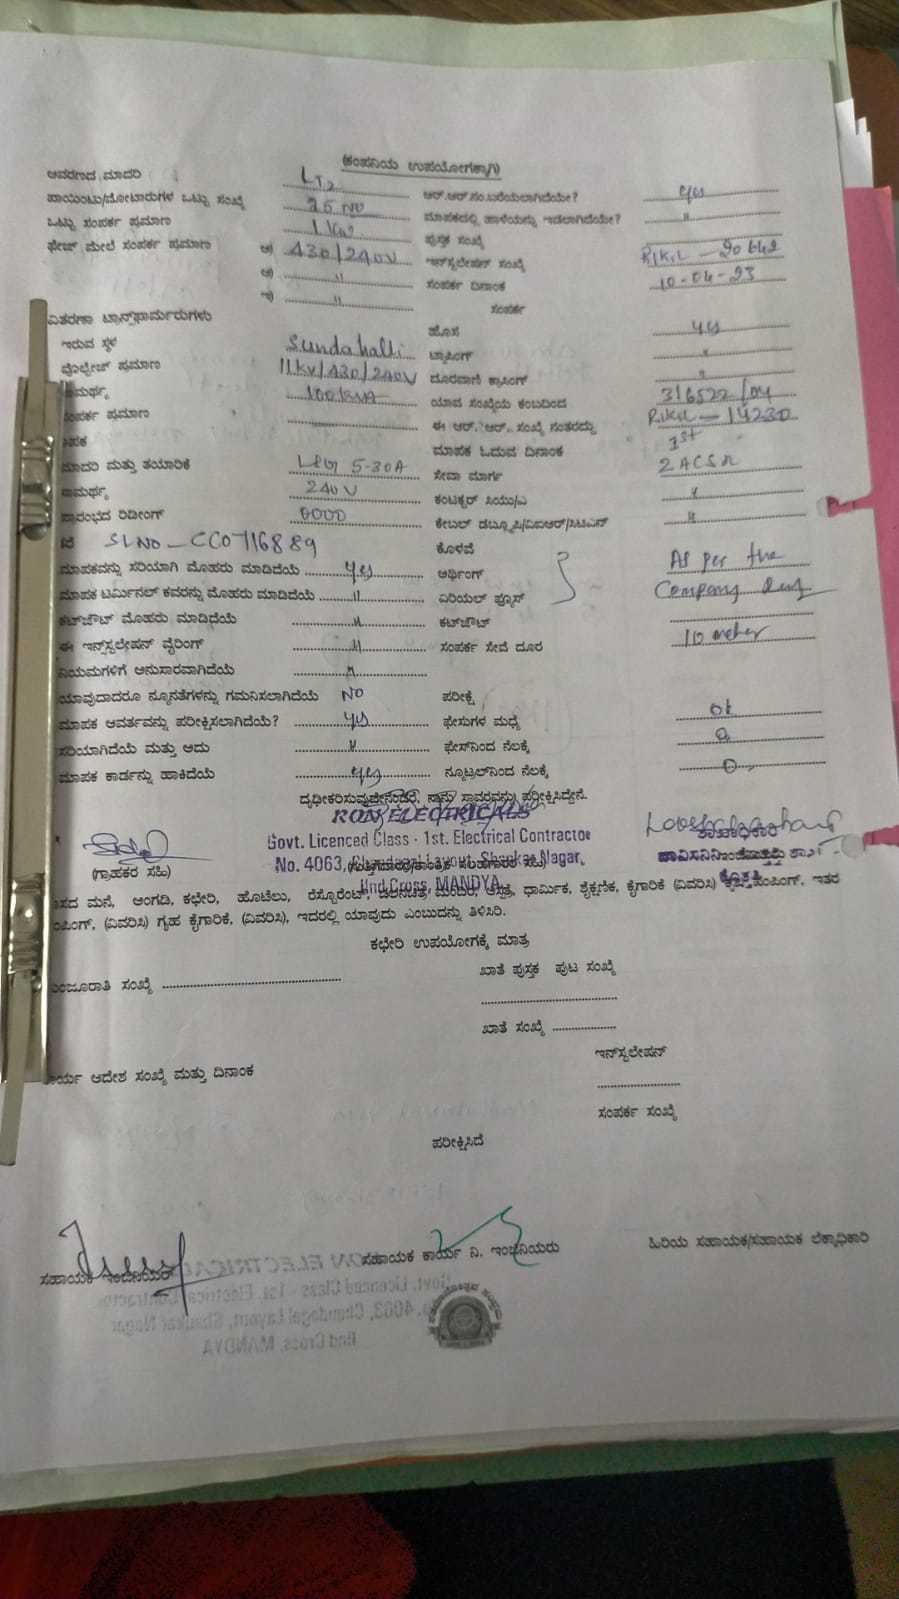 (ಕಂಪನಿಯ ಉಪಯೋಗಕ್ಕಾಗಿ)
ಆವರಣದ ಮಾದರಿ LT2 ಆರ್.ಆರ್.ನಂ.ಬರೆಯಲಾಗಿದೆಯೇ? yes
ಪಾಯಿಂಟು/ಮೋಟಾರುಗಳ ಒಟ್ಟು ಸಂಖ್ಯೆ 25 NO ಮಾಪಕದಲ್ಲಿ ಹಾಳೆಯನ್ನು ಇಡಲಾಗಿದೆಯೇ? "
ಒಟ್ಟು ಸಂಪರ್ಕ ಪ್ರಮಾಣ 1 KW ಪುಸ್ತಕ ಸಂಖ್ಯೆ
ಫೇಜ್ ಮೇಲೆ ಸಂಪರ್ಕ ಪ್ರಮಾಣ ಅ) 430/240V ಇನ್‌ಸ್ಟಲೇಷನ್ ಸಂಖ್ಯೆ RIKIL-20642
ಆ) " ಸಂಪರ್ಕ ದಿನಾಂಕ 10-04-23
ಇ) " ಸಂಪರ್ಕ
ವಿತರಣಾ ಟ್ರಾನ್ಸ್‌ಫಾರ್ಮರುಗಳು ಹೊಸ yes
ಇರುವ ಸ್ಥಳ Sundahalli ಟ್ಯಾಪಿಂಗ್ "
ವೊಲ್ಟೇಜ್ ಪ್ರಮಾಣ 11KV/430/240V ದೂರವಾಣಿ ಕ್ರಾಸಿಂಗ್ "
ಸಾಮರ್ಥ್ಯ 100 KVA ಯಾವ ಸಂಖ್ಯೆಯ ಕಂಬದಿಂದ 316522/04
ಸಂಪರ್ಕ ಪ್ರಮಾಣ ಈ ಆರ್. ಆರ್. ಸಂಖ್ಯೆ ನಂತರದ್ದು RIKIL-14230
ಮಾಪಕ ಮಾಪಕ ಓದುವ ದಿನಾಂಕ 1st
ಮಾದರಿ ಮತ್ತು ತಯಾರಿಕೆ L&G 5-30A ಸೇವಾ ಮಾರ್ಗ 2 ACSR
ಸಾಮರ್ಥ್ಯ 240 V ಕಂಟಕ್ಟರ್ ಸಿಯು/ಎ "
ಪ್ರಾರಂಭದ ರಿಡೀಂಗ್ 0000 ಕೇಬಲ್ ಡಬ್ಲ್ಯೂಪಿ/ವಿಐಆರ್/ಸಿಟಿಎನ್ "
SL NO - CC0716889 ಕೊಳವೆ
ಮಾಪಕವನ್ನು ಸರಿಯಾಗಿ ಮೊಹರು ಮಾಡಿದೆಯೆ yes ಆರ್ಥಿಂಗ್ As per the
ಮಾಪಕ ಟರ್ಮಿನಲ್ ಕವರನ್ನು ಮೊಹರು ಮಾಡಿದೆಯೆ " ಏರಿಯಲ್ ಫ್ಯೂಸ್ Company
ಕಟ್‌ಔಟ್ ಮೊಹರು ಮಾಡಿದೆಯೆ " ಕಟ್‌ಔಟ್
ಈ ಇನ್‌ಸ್ಟಲೇಷನ್ ವೈರಿಂಗ್ " ಸಂಪರ್ಕ ಸೇವೆ ದೂರ 10 meter
ನಿಯಮಗಳಿಗೆ ಅನುಸಾರವಾಗಿದೆಯೆ "
ಯಾವುದಾದರೂ ನ್ಯೂನತೆಗಳನ್ನು ಗಮನಿಸಲಾಗಿದೆಯೆ NO ಪರೀಕ್ಷೆ
ಮಾಪಕ ಆವರ್ತವನ್ನು ಪರೀಕ್ಷಿಸಲಾಗಿದೆಯೆ? yes ಫೇಸುಗಳ ಮಧ್ಯೆ ok
ಸರಿಯಾಗಿದೆಯೆ ಮತ್ತು ಅದು " ಫೇಸ್‌ನಿಂದ ನೆಲಕ್ಕೆ
ಮಾಪಕ ಕಾರ್ಡನ್ನು ಹಾಕಿದೆಯೆ yes ನ್ಯೂಟ್ರಲ್‌ನಿಂದ ನೆಲಕ್ಕೆ 0
ದೃಢೀಕರಿಸುವುದೇನೆಂದರೆ, ನಾನು ಸ್ಥಾವರವನ್ನು ಪರೀಕ್ಷಿಸಿದ್ದೇನೆ.
RON ELECTRICALS
Govt. Licenced Class - 1st. Electrical Contractor
No. 4063, Chandagal Layout, Shankar Nagar,
IInd Cross, MANDYA
(ಗ್ರಾಹಕರ ಸಹಿ) ಶಾಖಾಧಿಕಾರಿ
ವಾಸದ ಮನೆ, ಅಂಗಡಿ, ಕಛೇರಿ, ಹೊಟೆಲು, ರೆಸ್ಟೊರೆಂಟ್, ಚಲನಚಿತ್ರ ಮಂದಿರ, ಆಸ್ಪತ್ರೆ, ಧಾರ್ಮಿಕ, ಶೈಕ್ಷಣಿಕ, ಕೈಗಾರಿಕೆ (ವಿವರಿಸಿ) ಕೃಷಿ ಪಂಪಿಂಗ್, ಇತರ
ಪಂಪಿಂಗ್, (ವಿವರಿಸಿ) ಗೃಹ ಕೈಗಾರಿಕೆ, (ವಿವರಿಸಿ), ಇದರಲ್ಲಿ ಯಾವುದು ಎಂಬುದನ್ನು ತಿಳಿಸಿರಿ.
ಕಛೇರಿ ಉಪಯೋಗಕ್ಕೆ ಮಾತ್ರ
ಮಂಜೂರಾತಿ ಸಂಖ್ಯೆ ಖಾತೆ ಪುಸ್ತಕ ಪುಟ ಸಂಖ್ಯೆ
ಖಾತೆ ಸಂಖ್ಯೆ
ಇನ್‌ಸ್ಟಲೇಷನ್
ಕಾರ್ಯ ಆದೇಶ ಸಂಖ್ಯೆ ಮತ್ತು ದಿನಾಂಕ
ಸಂಪರ್ಕ ಸಂಖ್ಯೆ
ಪರೀಕ್ಷಿಸಿದೆ
ಸಹಾಯಕ ಇಂಜಿನಿಯರ್ ಸಹಾಯಕ ಕಾರ್ಯ ನಿ. ಇಂಜಿನಿಯರು ಹಿರಿಯ ಸಹಾಯಕ/ಸಹಾಯಕ ಲೆಕ್ಕಾಧಿಕಾರಿ